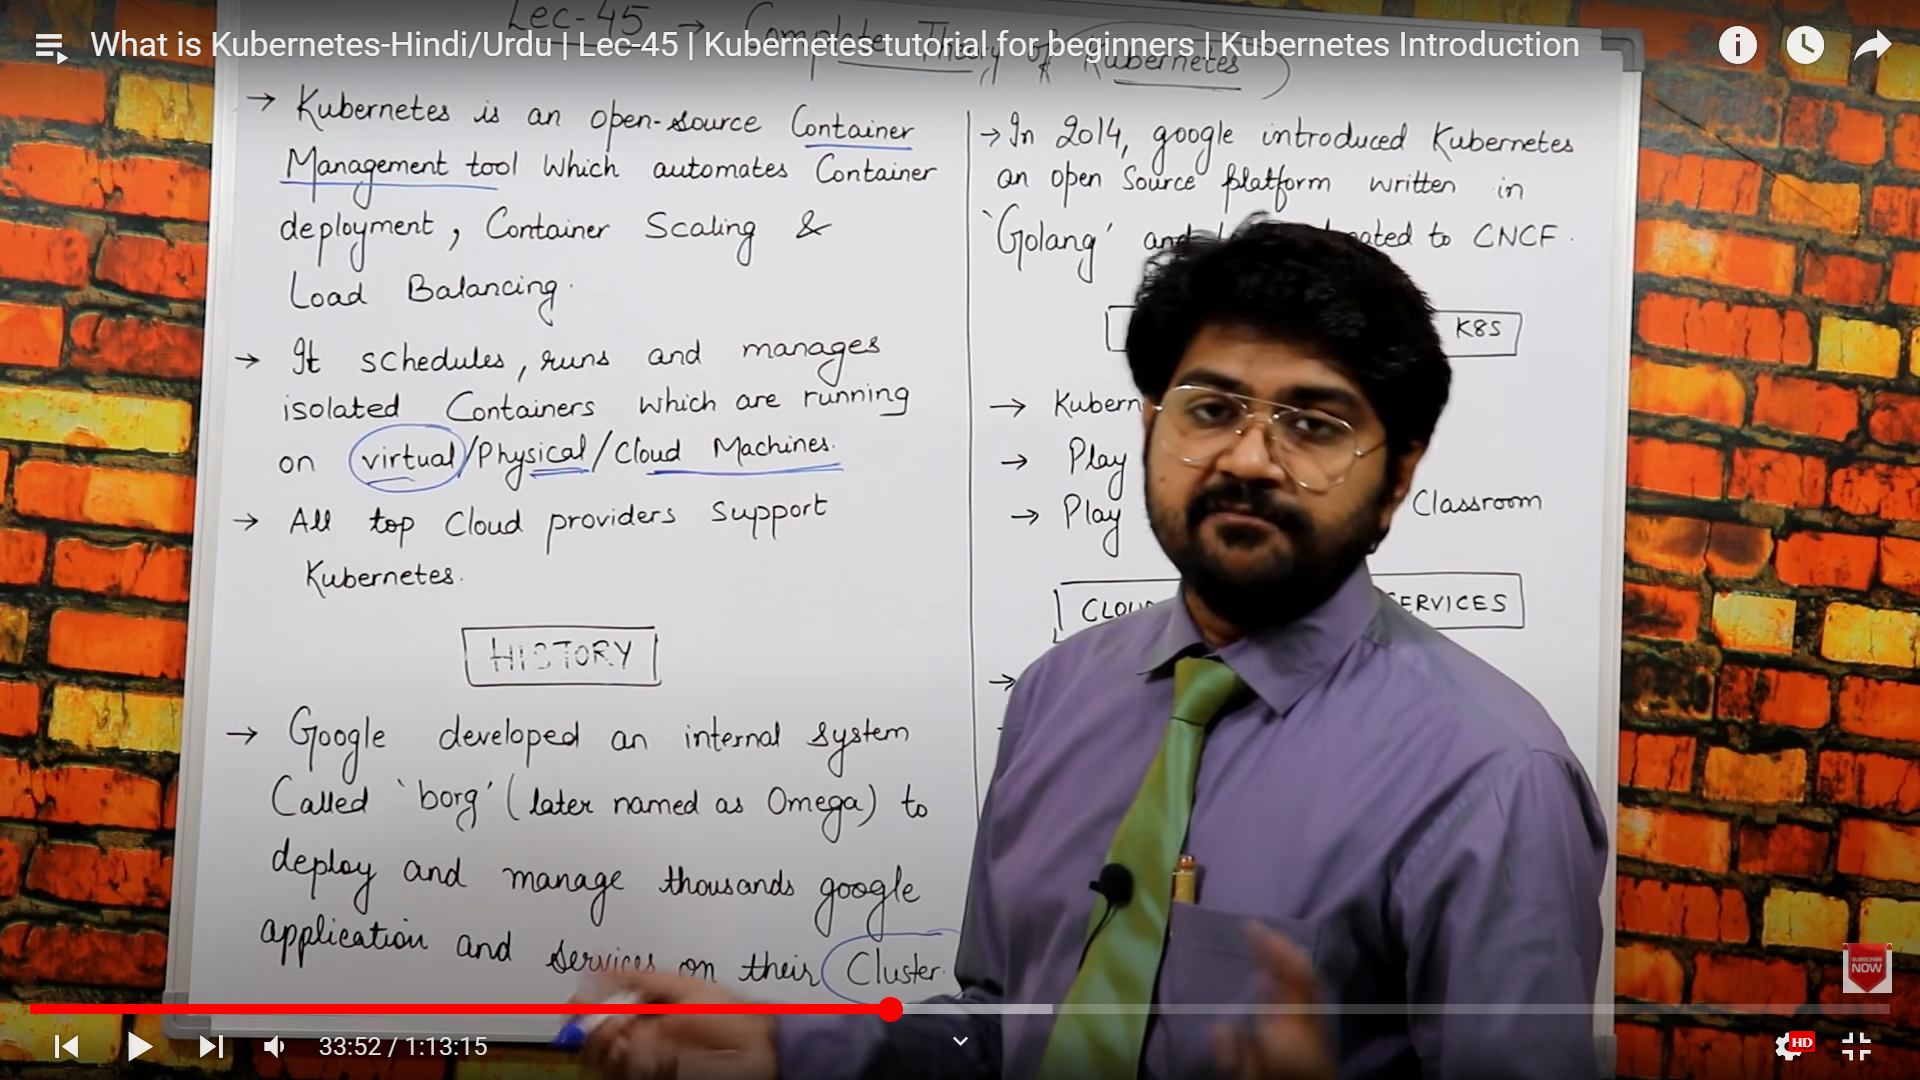 What is Kubernetes-Hindi/Urdu | Lec-45 | Kubernetes tutorial for beginners | Kubernetes Introduction
Lec-45 → Complete Theory of (Kubernetes)
→ Kubernetes is an open-source Container
Management tool which automates Container
deployment, Container Scaling &
Load Balancing.
→ It schedules, runs and manages
isolated Containers which are running
on virtual/Physical/Cloud Machines.
→ All top Cloud providers support
Kubernetes.
HISTORY
→ Google developed an internal system
Called 'borg' (later named as Omega) to
deploy and manage thousands google
application and services on their Cluster.
→ In 2014, google introduced Kubernetes
an open source platform written in
'Golang' and to CNCF.
K8S
→ Kubern
→ Play
→ Play Classroom
CLOU ERVICES
→
SUBSCRIBE
NOW
33:52 / 1:13:15
HD